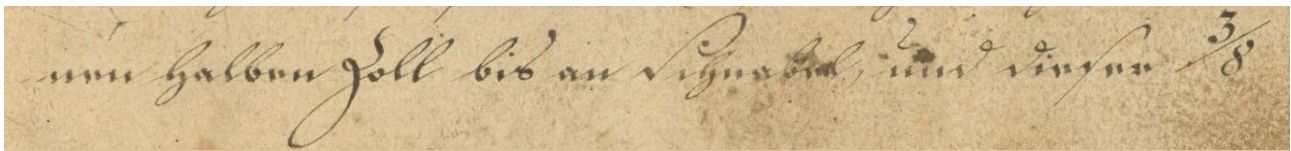 nen halben Zoll bis an Schnabel, und dieser 3/8